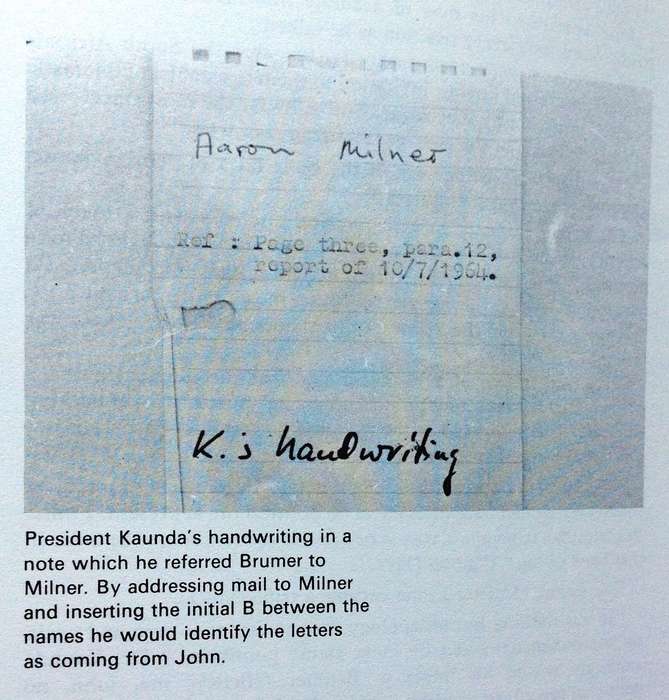 Aaron Milner
Ref : Page three, para.12,
report of 10/7/1964.
K.'s handwriting
President Kaunda's handwriting in a
note which he referred Brumer to
Milner. By addressing mail to Milner
and inserting the initial B between the
names he would identify the letters
as coming from John.